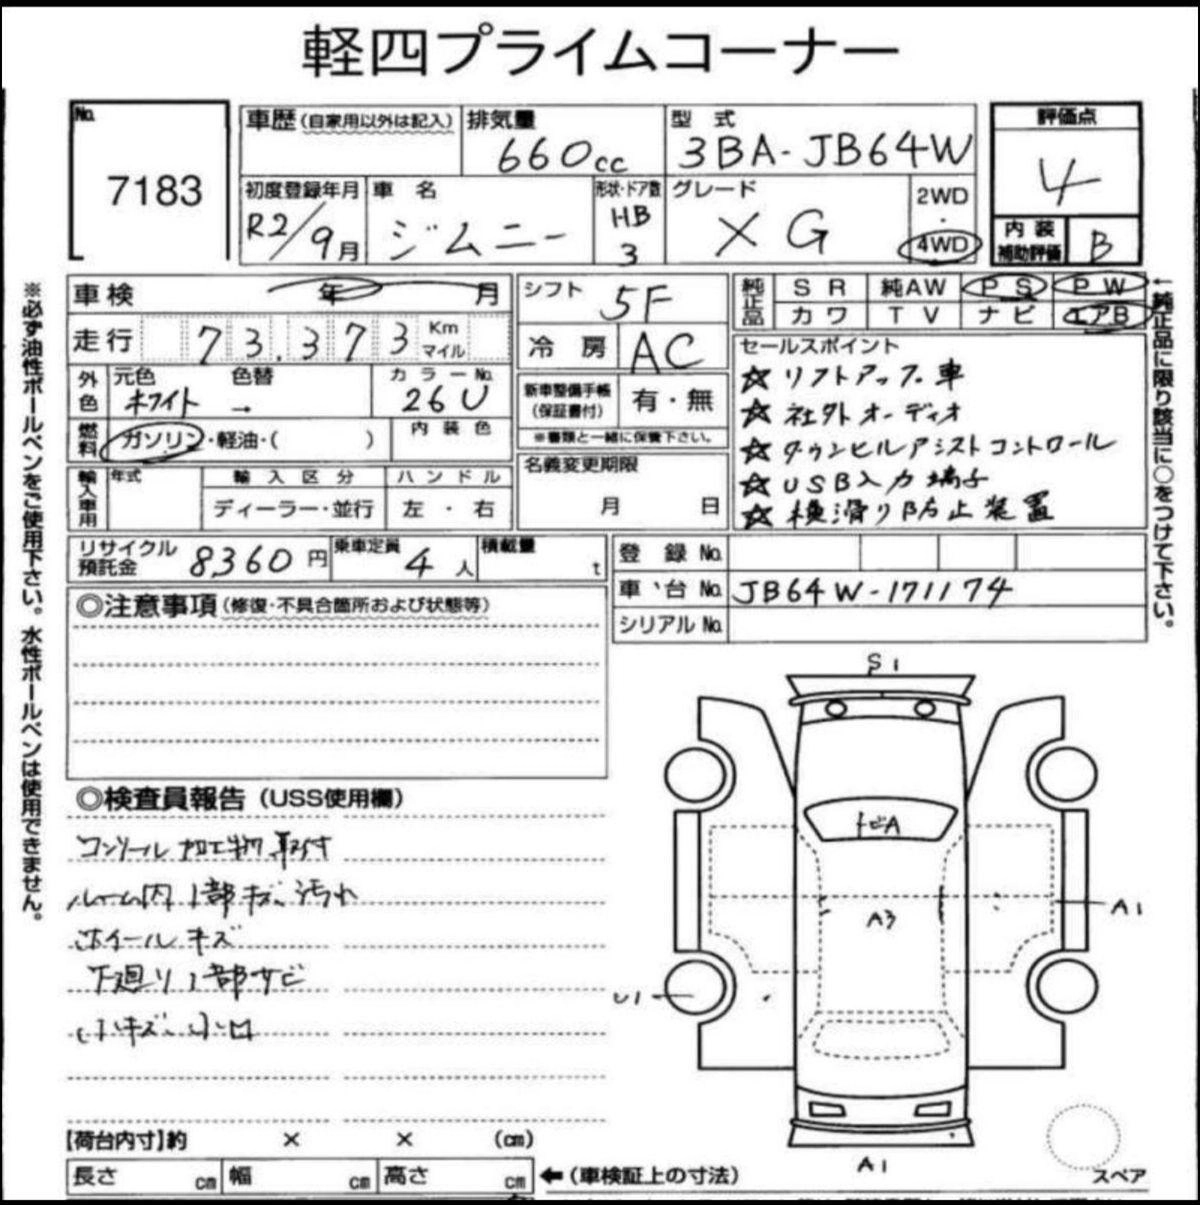 軽四プライムコーナー
No.
7183
車歴(自家用以外は記入)
排気量
660cc
型 式
3BA-JB64W
評価点
4
初度登録年月
R2/9月
車 名
ジムニー
形状・ドア数
HB
3
グレード
XG
2WD
・
4WD
内 装
補助評価
B
車検 年 月
シフト
5F
純正品
SR 純AW PS PW
カワ TV ナビ エアB
走行
73,373
Km
マイル
冷 房
AC
セールスポイント
☆リフトアップ車
☆社外オーディオ
☆ダウンヒルアシストコントロール
☆USB入力端子
☆横滑り防止装置
外色
元色 色替
ホワイト →
カラーNo.
26U
新車整備手帳
(保証書付)
有・無
※書類と一緒に保管下さい。
燃料
ガソリン・軽油・( )
内装色
名義変更期限
月 日
輸入車用
年式
輸入区分
ディーラー・並行
ハンドル
左・右
リサイクル
預託金
8,360円
乗車定員
4人
積載量
t
登 録 No.
車 台 No.
JB64W-171174
シリアル No.
◎注意事項(修復・不具合箇所および状態等)
◎検査員報告(USS使用欄)
コンソール加工物取付
ルーム内1部キズ、汚れ
ホイールキズ
下廻り1部サビ
小キズ、小凹
S1
トビA
A3
A1
U1
A1
スペア
【荷台内寸】約 × × (cm)
長さ cm 幅 cm 高さ cm
←(車検証上の寸法)
※必ず油性ボールペンをご使用下さい。水性ボールペンは使用できません。
←純正品に限り該当に○をつけて下さい。